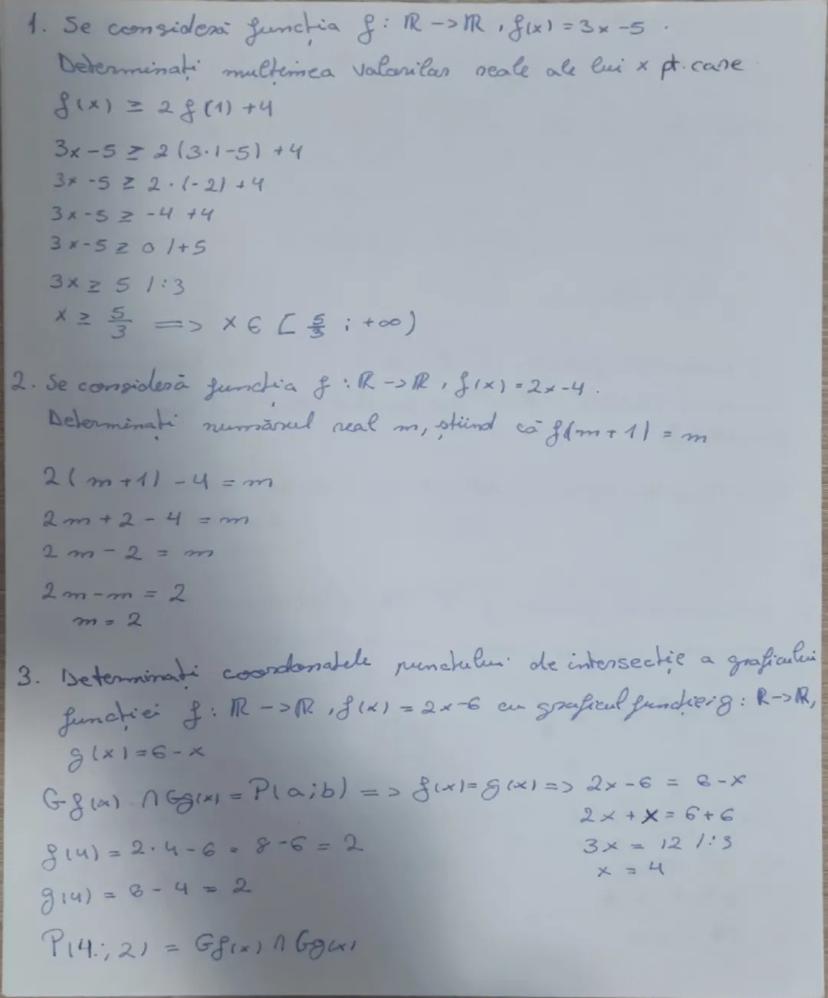 1. Se consideră funcția f: ℝ -> ℝ, f(x) = 3x - 5.
Determinați mulțimea valorilor reale ale lui x pt. care
f(x) ≥ 2 f(1) + 4
3x - 5 ≥ 2(3·1-5) + 4
3x - 5 ≥ 2·(-2) + 4
3x - 5 ≥ -4 + 4
3x - 5 ≥ 0 /+5
3x ≥ 5 /:3
x ≥ 5/3 => x ∈ [5/3 ; +∞)
2. Se consideră funcția f: ℝ -> ℝ, f(x) = 2x-4.
Determinați numărul real m, știind că f(m+1) = m
2(m+1) - 4 = m
2m + 2 - 4 = m
2m - 2 = m
2m - m = 2
m = 2
3. Determinați coordonatele punctului de intersecție a graficului
funcției f: ℝ -> ℝ, f(x) = 2x-6 cu graficul funcției g: ℝ->ℝ,
g(x) = 6 - x
Gf(x) ∩ Gg(x) = P(a;b) => f(x) = g(x) => 2x-6 = 6-x
2x + x = 6+6
3x = 12 /:3
x = 4
f(4) = 2·4-6 = 8-6 = 2
g(4) = 6 - 4 = 2
P(4;2) = Gf(x) ∩ Gg(x)